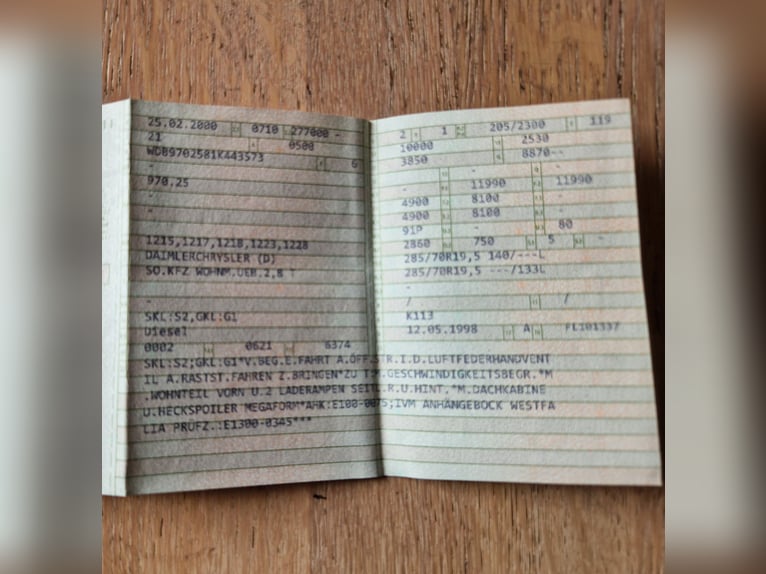 25.02.2000 0710 277000 -
21 0500
WDB9702581K443573 6
-
970.25
-
-
1215,1217,1218,1223,1228
DAIMLERCHRYSLER (D)
SO.KFZ WOHNM.UEB.2,8 T
-
SKL:S2,GKL:G1
Diesel
0002 0621 6374
2 1 205/2300 119
10000 2530
3850 8870--
- -
- 11990 11990
4900 8100 -
4900 8100 -
91P - 80
2860 750 5 -
285/70R19,5 140/---L
285/70R19,5 ---/133L
-
/ /
K113
12.05.1998 A FL101337
SKL:S2;GKL:G1*V.BEG.E.FAHRT A.ÖFF.STR.I.D.LUFTFEDERHANDVENT
IL A.RASTST.FAHREN Z.BRINGEN*ZU T:M.GESCHWINDIGKEITSBEGR.*M
.WOHNTEIL VORN U.2 LADERAMPEN SEITL.R.U.HINT.*M.DACHKABINE
U.HECKSPOILER MEGAFORM*AHK:E100-0075;IVM ANHÄNGEBOCK WESTFA
LIA PRÜFZ.:E1300-0345***